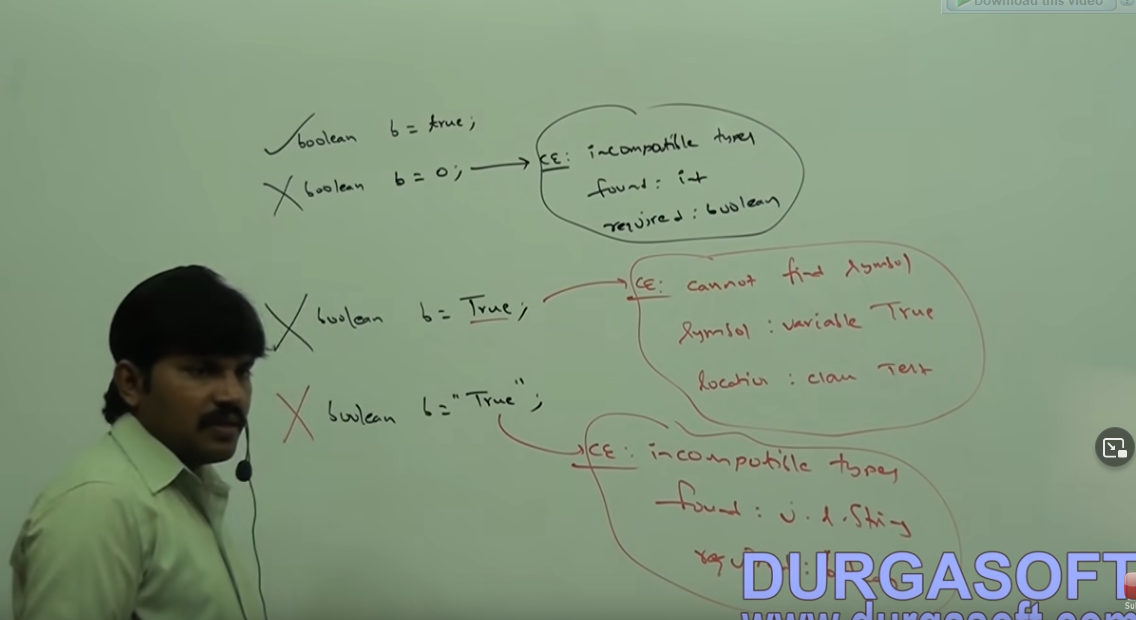 Download this video
boolean b = true;
boolean b = 0; → CE: incompatible types
found: int
required: boolean
boolean b = True; → CE: cannot find symbol
symbol: variable True
location: class Test
boolean b = "True"; → CE: incompatible types
found: j.l.String
required: boolean
DURGASOFT
www.durgasoft.com